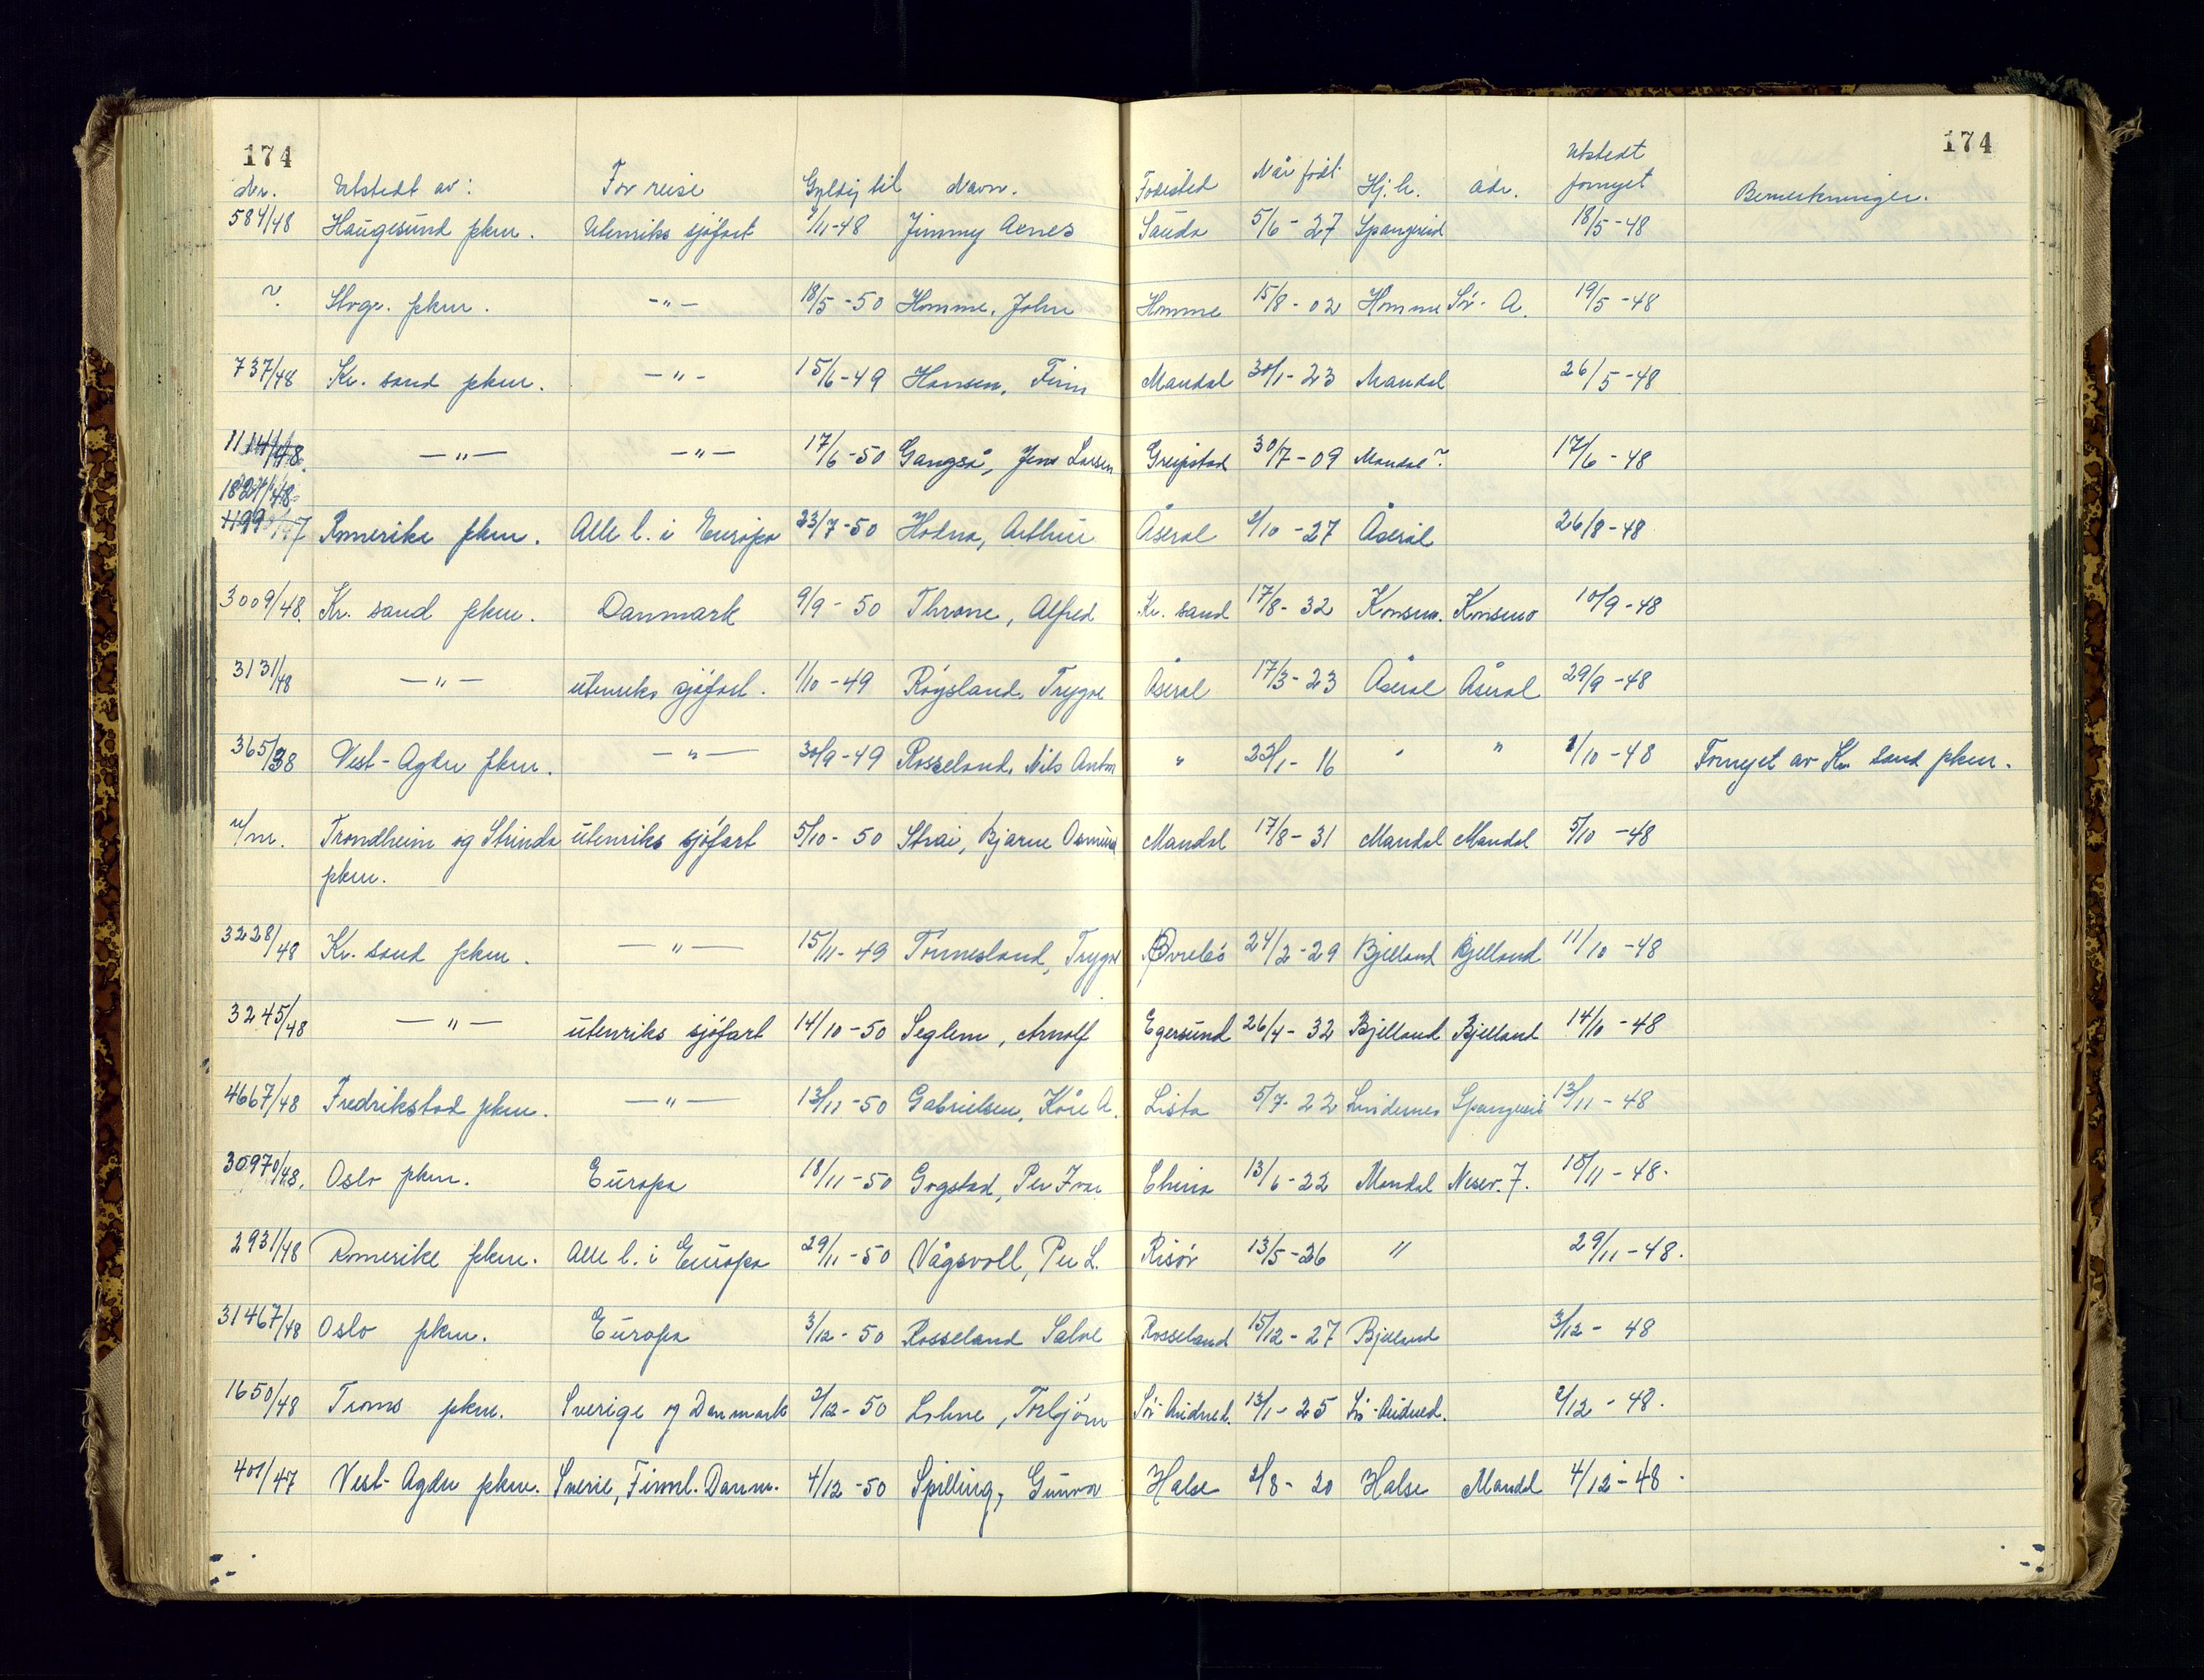 174 174
Nr. Utstedt av: For reise Gyldig til Navn. Fødested Når født Hj.h. adr. Utstedt fornyet Bemerkninger.
584/48 Haugesund pkm. Utenriks sjöfart 7/11-48 Jimmy Aenes Sauda 5/6-27 Spangereid 18/5-48
? Stvgr. pkm. -"- 18/5-50 Homme, John Homme 15/8-02 Homme Sör-A. 19/5-48
737/48 Kr. sand pkm. -"- 15/6-49 Hansen, Finn Mandal 30/1-23 Mandal 26/5-48
1114/48. -"- -"- 17/6-50 Gangså, Jens Larsen Greipstad 30/7-09 Mandal? 17/6-48
1827/48
1199/47 Romerike pkm. Alle l. i Europa 23/7-50 Hodna, Arthur Åseral 2/10-27 Åseral 26/8-48
3009/48. Kr. sand pkm. Danmark 9/9-50 Throne, Alfred Kr. sand 17/8-32 Konsm. Konsmo 10/9-48
3131/48 -"- utenriks sjöfart. 1/10-49 Röysland, Trygve Åseral 17/3-23 Åseral Åseral 29/9-48
365/38 Vest-Agder pkm. -"- 30/9-49 Rosseland, Nils Anton " 22/1-16 " " 1/10-48 Fornyet av Kr. sand pkm.
u/nr. Trondheim og Strinda utenriks sjöfart 5/10-50 Strai, Bjarne Osmund Mandal 17/8-31 Mandal Mandal 5/10-48
pkm.
3228/48 Kr. sand pkm. -"- 15/11-49 Tönnesland, Trygve Øvrebö 24/2-29 Bjelland Bjelland 11/10-48
3245/48 -"- utenriks sjöfart 14/10-50 Seglem, Arnolf Egersund 26/4-32 Bjelland Bjelland 14/10-48
4667/48 Fredrikstad pkm. -"- 13/11-50 Gabrielsen, Kåre A. Lista 5/7-22 Lindesnes Spangereid 13/11-48
30970/48. Oslo pkm. Europa 18/11-50 Gogstad, Per Ivar China 13/6-22 Mandal Nesev. 7. 18/11-48.
2931/48 Romerike pkm. Alle l. i Europa 29/11-50 Vågsvoll, Per L. Risör 13/5-26 " 29/11-48.
31467/48 Oslo pkm. Europa 3/12-50 Rosseland Salve Rosseland 15/12-27 Bjelland 3/12-48
1650/48 Troms pkm. Sverige og Danmark 2/12-50 Lohne, Torbjörn Sör-Audned. 13/1-25 Sör-Audned. 2/12-48.
401/47 Vest-Agder pkm. Sverie, Finnl. Danm. 4/12-50 Spilling, Gunvor Halse 2/8-20 Halse Mandal 4/12-48.